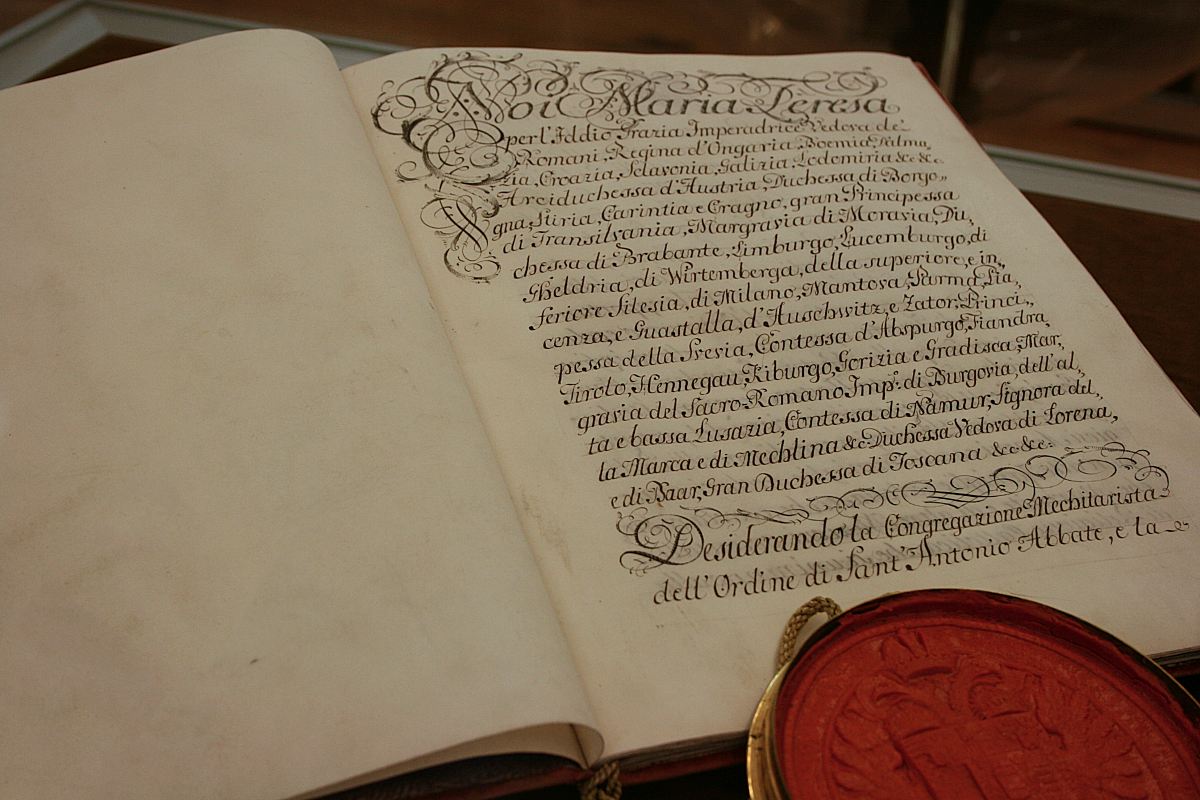 Noi Maria Teresa
per l'Iddio Grazia Imperadrice Vedova de'
Romani, Regina d'Ungaria, Boemia, Dalma„
zia, Croazia, Sclavonia, Galizia, Lodomiria &c &c.
Arciduchessa d'Austria, Duchessa di Borgo„
gna, Stiria, Carintia e Cragno, gran Principessa
di Transilvania, Margravia di Moravia, Du„
chessa di Brabante, Limburgo, Lucemburgo, di
Gheldria, di Wirtemberga, della superiore, e in„
feriore Silesia, di Milano, Mantova, Parma, Pia„
cenza, e Guastalla, d'Auschwitz, e Zator, Princi„
pessa della Svevia, Contessa d'Abspurgo, Fiandra,
Tirolo, Hennegau, Kiburgo, Gorizia e Gradisca, Mar„
gravia del Sacro Romano Imp: di Burgovia, dell'al„
ta e bassa Lusazia, Contessa di Namur, Signora del„
la Marca e di Mechlina &c Duchessa Vedova di Lorena,
e di Baar, Gran Duchessa di Toscana &c &c.
Desiderando la Congregazione Mechitarista
dell'Ordine di Sant'Antonio Abbate, e la